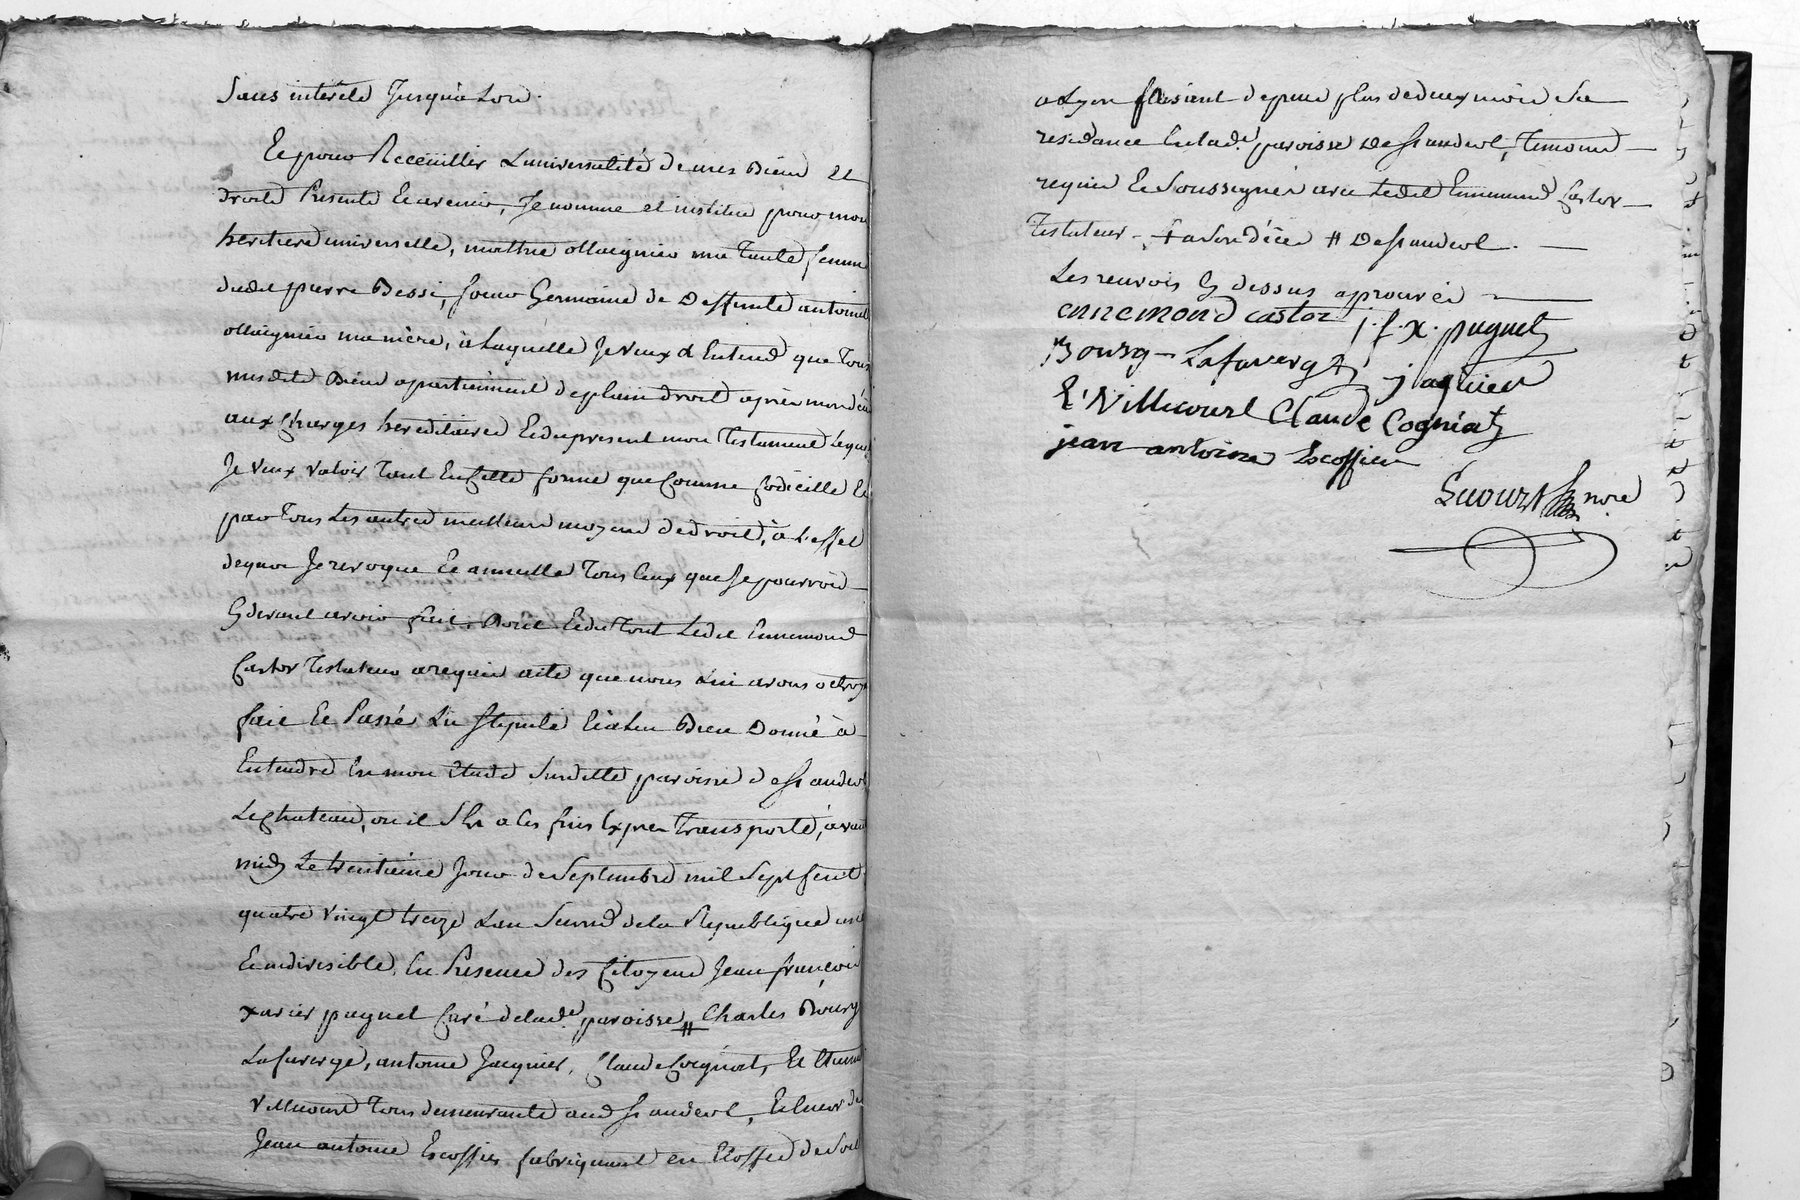 Sans interets Jusqu'a Lors.
Et pour Receuillir L'universalité de mes Biens et
droits Presents Et avenir, Je nomme et institue pour mon
heritiere universelle, marthe ollaignier ma Tante femme
dudit pierre Bessi, soeur Germaine de Deffunte antoinette
ollaignier ma mère, à Laquelle Je Veux & Entend que Tous
mesdits Biens apartiennent de plain droit après mon décès
aux Charges hereditaires Et du present mon Testament Lequel
Je Veux Valoir Tant En Cette forme que Comme Codicille Et
par Tous Les autres meilleurs moyens de droit, à L'effet
de quoi Je revoque Et annulle Tous Ceux que Je pourrois
Cy devant avoir fait. Dont Et du Tout Ledit Ennemond
Castor Testateur a requis acte que nous Lui avons octroyé
fait Et Passé Lu Stipulé Et à Lui Bien Donné à
Entendre En mon Etude Susditte paroisse de St andeol
Le Chateau, ou il S'est a Ces fins Exprès Transporté, avant
midy Le trentieme Jour de Septembre mil Sept Cent
quatre Vingt treize L'an Second de la Republique une
Et indivisible, En Presence des Citoyens Jean françois
xavier puynet Curé de lad.e paroisse # Charles Bourg
Lafaverge, antoine Jaquier, Claude Cogniat, Et Etienne
Villecourt Tous demeurants aud St andeol, Et Encore de
Jean antoine Escoffier fabriquant en Etoffes de Soie
a Lyon faisant depuis plus de deux mois Sa
residance En lad.e paroisse de St andeol, Temoins
requis Et Soussignés avec Ledit Ennemond Castor
Testateur. + a Son décès # de St andeol.
Les renvois Cy dessus aprouvés
ennemond castor j. f. x. puynet
Bourg Lafaverge jaquier
E. Villecourt Claude Cogniat
jean antoine Escoffier
nore